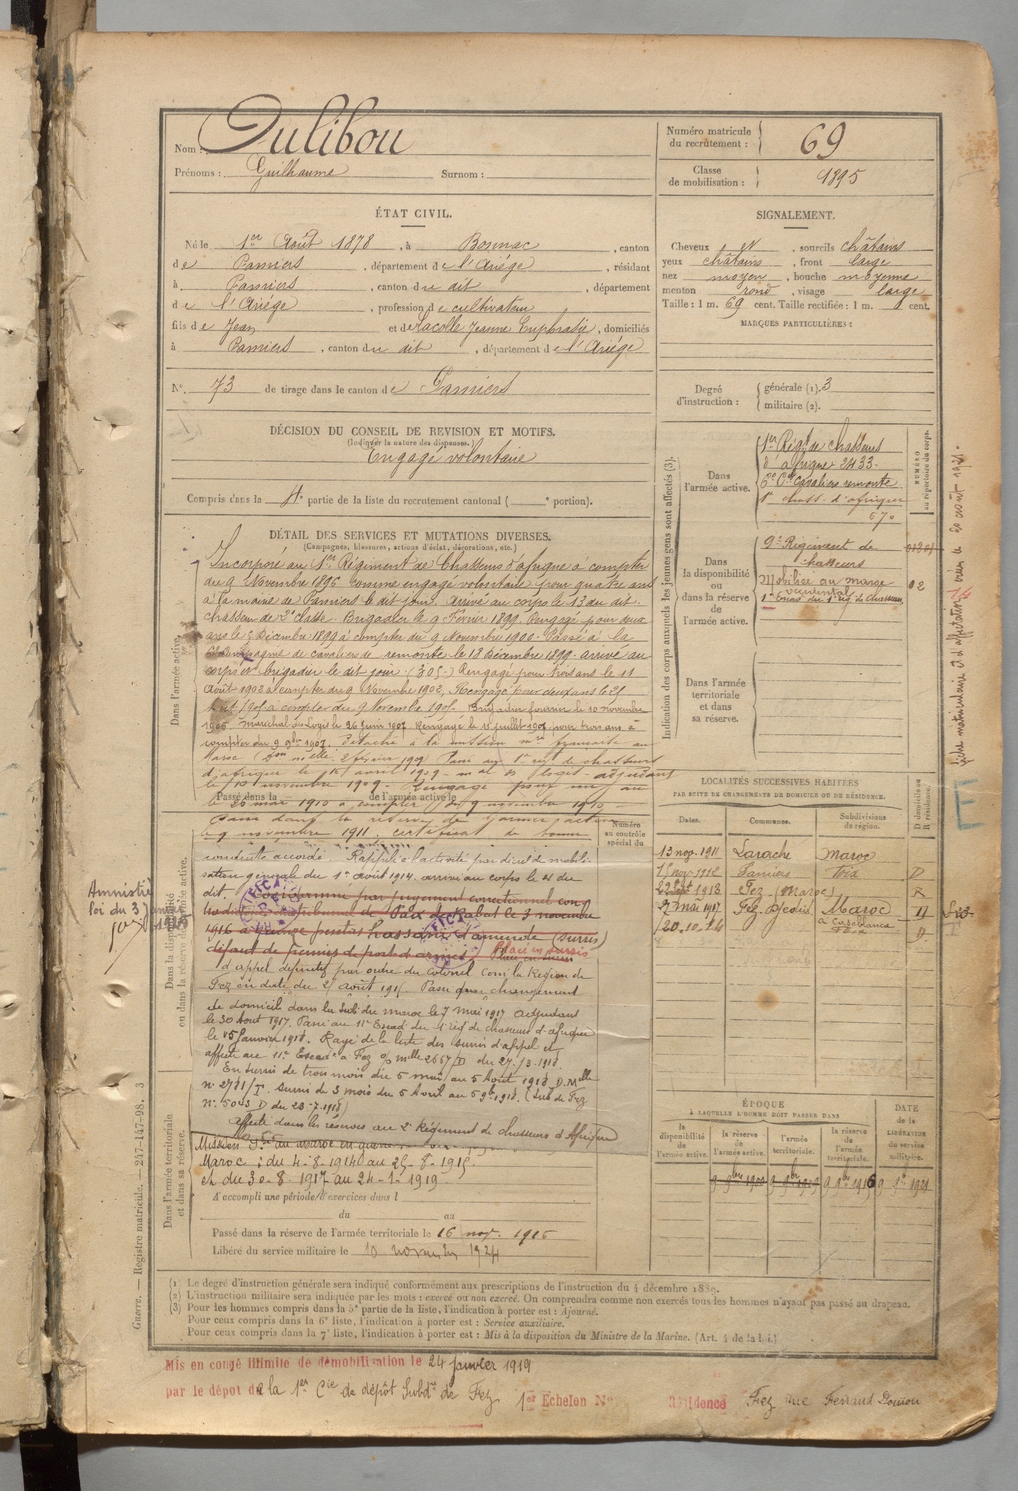 Nom : Dulibou
Prénoms : Guilhaume Surnom :
Numéro matricule du recrutement : 69
Classe de mobilisation : 1895
ÉTAT CIVIL.
Né le 1er Août 1878, à Bonnac, canton
de Pamiers, département de l'Ariége, résidant
à Pamiers, canton du dit, département
de l'Ariége, profession de cultivateur
fils de Jean et de Lacolle Jeanne Euphrasie, domiciliés
à Pamiers, canton du dit, département de l'Ariége
N° 73 de tirage dans le canton de Pamiers
SIGNALEMENT.
Cheveux et, sourcils châtains
yeux châtains, front large
nez moyen, bouche moyenne
menton rond, visage large
Taille : 1 m. 69 cent. Taille rectifiée : 1 m. cent.
MARQUES PARTICULIÈRES :
Degré d'instruction : générale (1). 3
militaire (2).
DÉCISION DU CONSEIL DE REVISION ET MOTIFS.
(Indiquer la nature des dispenses.)
Engagé volontaire
Compris dans la 4e partie de la liste du recrutement cantonal ( e portion).
Indication des corps auxquels les jeunes gens sont affectés (3).
NUMÉRO au répertoire du corps.
Dans l'armée active.
1er Régt de chasseurs
d'afrique 2433
6e Cie Cavaliers remonte
1er chass. d'afrique
670
Dans la disponibilité ou dans la réserve de l'armée active.
9e Régiment de
chasseurs
Mobilisé au maroc
occidental
1er Escad du 1er rég de chasseurs
02
Dans l'armée territoriale et dans sa réserve.
DÉTAIL DES SERVICES ET MUTATIONS DIVERSES.
(Campagnes, blessures, actions d'éclat, décorations, etc.)
Dans l'armée active.
Incorporé au 1er Régiment de Chasseurs d'afrique à compter
du 9 Novembre 1896 comme engagé volontaire pour quatre ans
à la mairie de Pamiers le dit jour. Arrivé au corps le 13 du dit.
chasseur de 2e classe. Brigadier le 9 Février 1899. Rengagé pour deux
ans le 5 Décembre 1899 à compter du 9 Novembre 1900. Passé à la
Compagnie de cavaliers de remonte le 13 Décembre 1899. arrivé au
corps et brigadier le dit jour (305). Rengagé pour trois ans le 11
Août 1902 à compter du 9 Novembre 1902. Rengagé pour deux ans le 25
Août 1905 à compter du 9 Novembre 1905. Brigadier fourrier le 10 novembre
1905. Maréchal des Logis le 26 Juin 1907. Rengagé le 11 juillet 1907 pour trois ans à
compter du 9 9bre 1907. Détaché à la mission mre française au
Maroc 2 février 1909 Passé au 1er régt de chasseurs
d'afrique le 15 avril 1909 – mal des logis – adjudant
le 10 novembre 1909 – Rengagé pour un an
le 26 mai 1910 à compter du 9 novembre 1910 –
Passé dans la réserve de l'armée active
le 9 novembre 1911, certificat de bonne
Numéro au contrôle spécial du
Dans la disponibilité ou dans la réserve de l'armée active.
conduite accordé. Rappelé à l'activité par décret de mobili-
sation générale du 1er août 1914. arrivé au corps le 4 du
dit. Condamné par jugement correctionnel con-
tradictoire du Tribunal de Paix de Rabat le 3 novembre
1916 à francs d'amende (sursis)
défaut de permis de port d'armes. Placé en sursis
d'appel définitif par ordre du Colonel Comt la Région de
Fez en date du 25 août 1915. Passé par changement
de domicile dans la Subd. du maroc le 7 mai 1917 adjudant
le 30 Aout 1917. Passé au 11e Escad. du 1er rég de chasseurs d'afrique
le 15 Janvier 1918. Rayé de la liste des sursis d'appel et
affecté au 11e Escad. à Fez D/ Melle 2667/D du 27/3-1918
En sursis de trois mois du 5 mai au 5 Août 1918 D. Melle
N° 2781/I. Sursis de 3 mois du 5 Avril au 5 9bre 1918 (Sub de Fez
N° 5043 D du 23-7-1918)
Affecté dans les réserves au 2e Régiment de chasseurs d'Afrique
Amnistié
loi du 3 janvier
1925
Dans l'armée territoriale et dans sa réserve.
Maroc : du 4-8-1914 au 25-8-1915.
et du 30-8-1917 au 24-1-1919
A accompli une période d'exercices dans l
du au
Passé dans la réserve de l'armée territoriale le 16 nov. 1916
Libéré du service militaire le 10 novembre 1924
LOCALITÉS SUCCESSIVES HABITÉES
PAR SUITE DE CHANGEMENTS DE DOMICILE OU DE RÉSIDENCE.
Dates. Commune. Subdivisions de région. D domicile ou R résidence.
13 nov. 1911 Larache Maroc
15 nov 1912 Pamiers Foix D
22 Sept 1913 Fez (Maroc) R
27 mai 1917 Fez Djedid Maroc D
20.10.14 Casablanca D
ÉPOQUE
À LAQUELLE L'HOMME DOIT PASSER DANS
la disponibilité de l'armée active. la réserve de l'armée active. l'armée territoriale. la réserve de l'armée territoriale.
DATE de la LIBÉRATION du service militaire.
9 9bre 1909 9 9bre 1909 9 9bre 1916 9 9bre 1921
(1) Le degré d'instruction générale sera indiqué conformément aux prescriptions de l'instruction du 4 décembre 1889.
(2) L'instruction militaire sera indiquée par les mots : exercé ou non exercé. On comprendra comme non exercés tous les hommes n'ayant pas passé au drapeau.
(3) Pour les hommes compris dans la 5e partie de la liste, l'indication à porter est : Ajourné.
Pour ceux compris dans la 6e liste, l'indication à porter est : Service auxiliaire.
Pour ceux compris dans la 7e liste, l'indication à porter est : Mis à la disposition du Ministre de la Marine. (Art. 4 de la loi.)
Guerre. — Registre matricule. — 247-147-98. 3
Mis en congé illimité de démobilisation le 24 janvier 1919
par le dépôt de la 1ere Cie de dépôt Subd. de Fez 1er Echelon N° Résidence Fez rue Ferraud Douiou